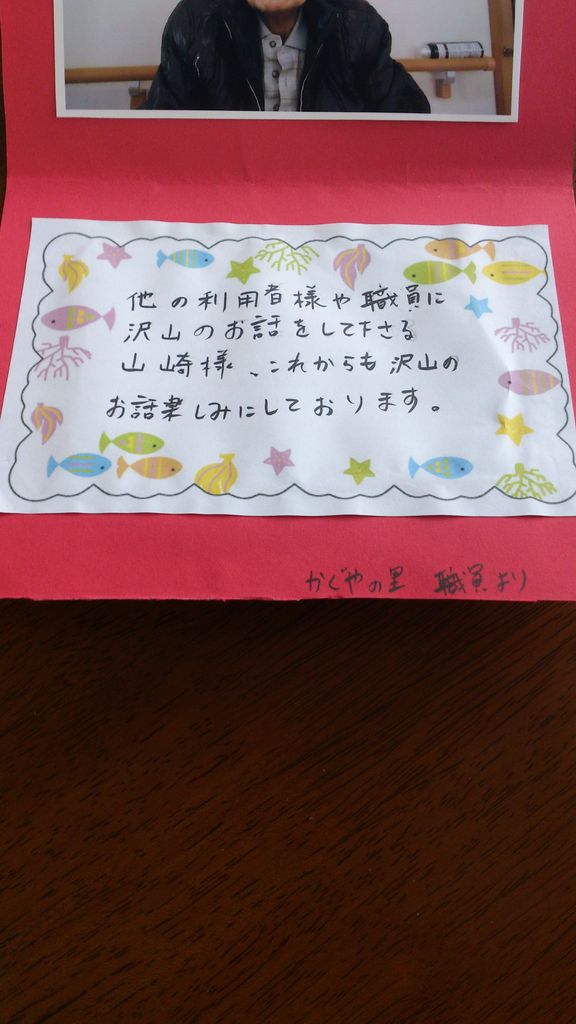 他の利用者様や職員に
沢山のお話をして下さる
山崎様、これからも沢山の
お話楽しみにしております。
かぐやの里 職員より